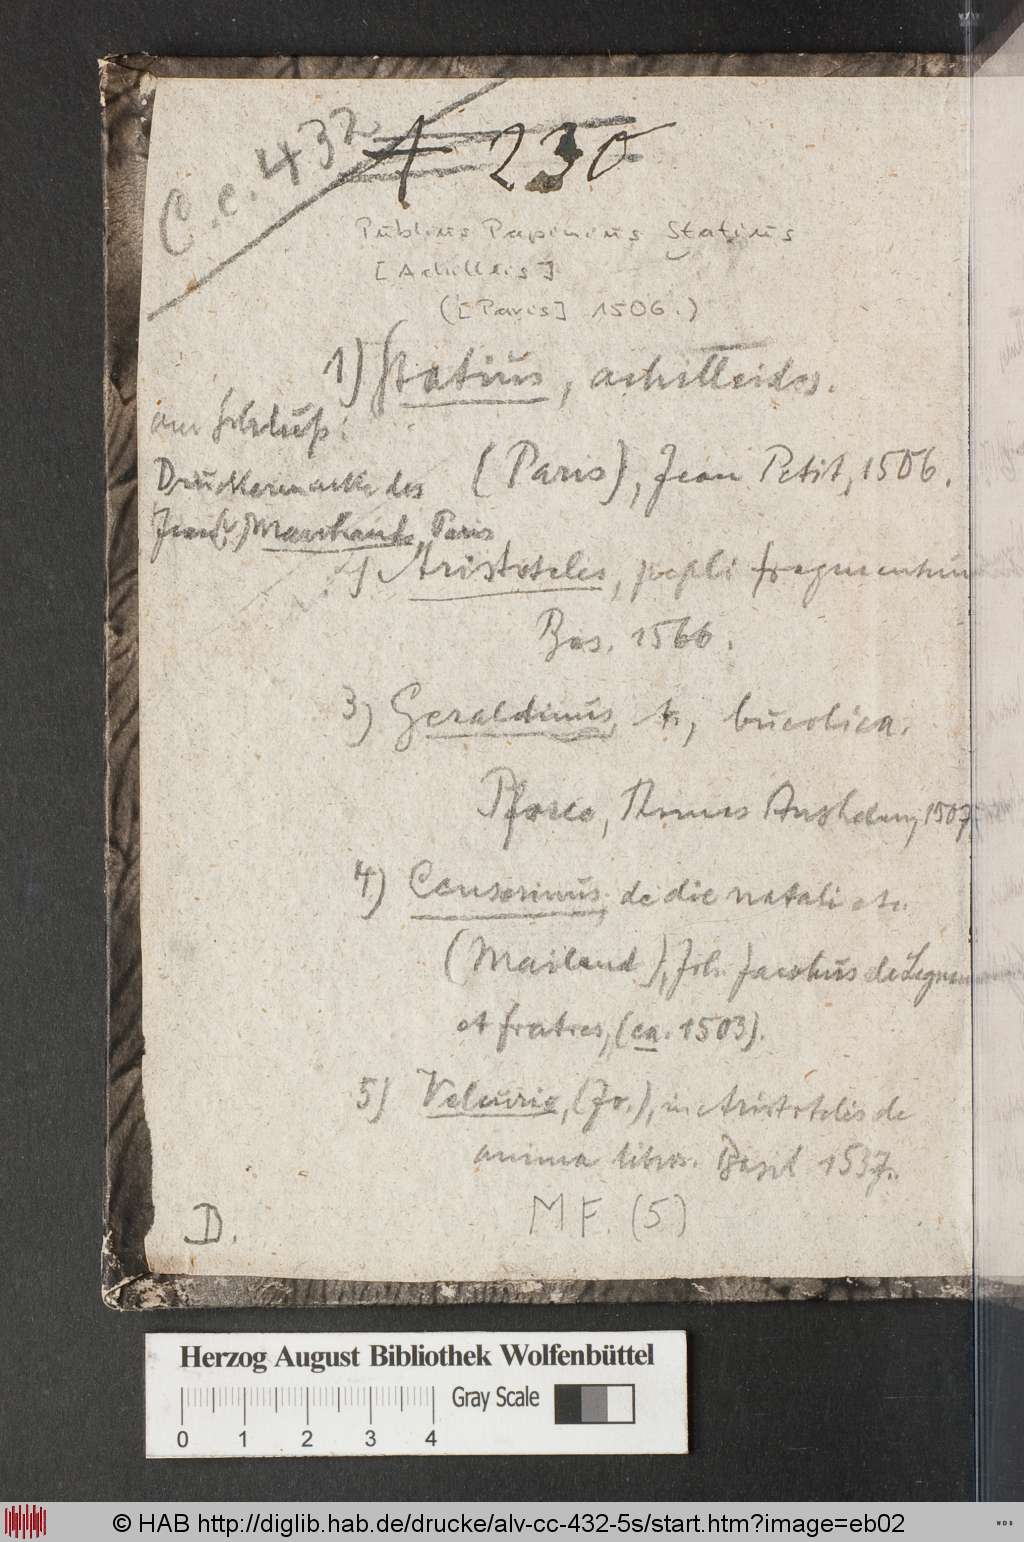 C.c. 432
A 230
Publius Papinius Statius
[Achilleis]
([Paris] 1506.)
1) Statius, achilleidos.
am Schluß:
(Paris), Jean Petit, 1506.
Druckermarke des
Marchand, Paris
Aristoteles, pepli fragmentum
Bas. 1566.
3) Geraldinus, A., bucolica.
Pforce, Thomas Anshelm, 1507
4) Censorinus, de die natali etc.
(Mailand), Joh. Jacobus de
et fratres, (ca. 1503).
5) Velcurio, (Jo.), in Aristotelis de
anima libros. Basel 1537.
M F. (5)
D.
Herzog August Bibliothek Wolfenbüttel
Gray Scale
0 1 2 3 4
© HAB http://diglib.hab.de/drucke/alv-cc-432-5s/start.htm?image=eb02